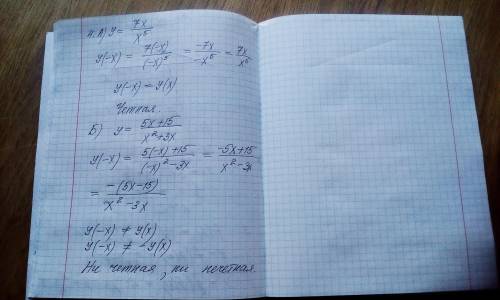 4. А) y = 7x/x⁵
y(-x) = 7(-x)/(-x)⁵ = -7x/-x⁵ = 7x/x⁵
y(-x) = y(x)
Четная.
Б) y = 5x+15/x²+3x
y(-x) = 5(-x)+15/(-x)²-3x = -5x+15/x²-3x
= -(5x-15)/x²-3x
y(-x) ≠ y(x)
y(-x) ≠ -y(x)
Ни четная, ни нечетная.